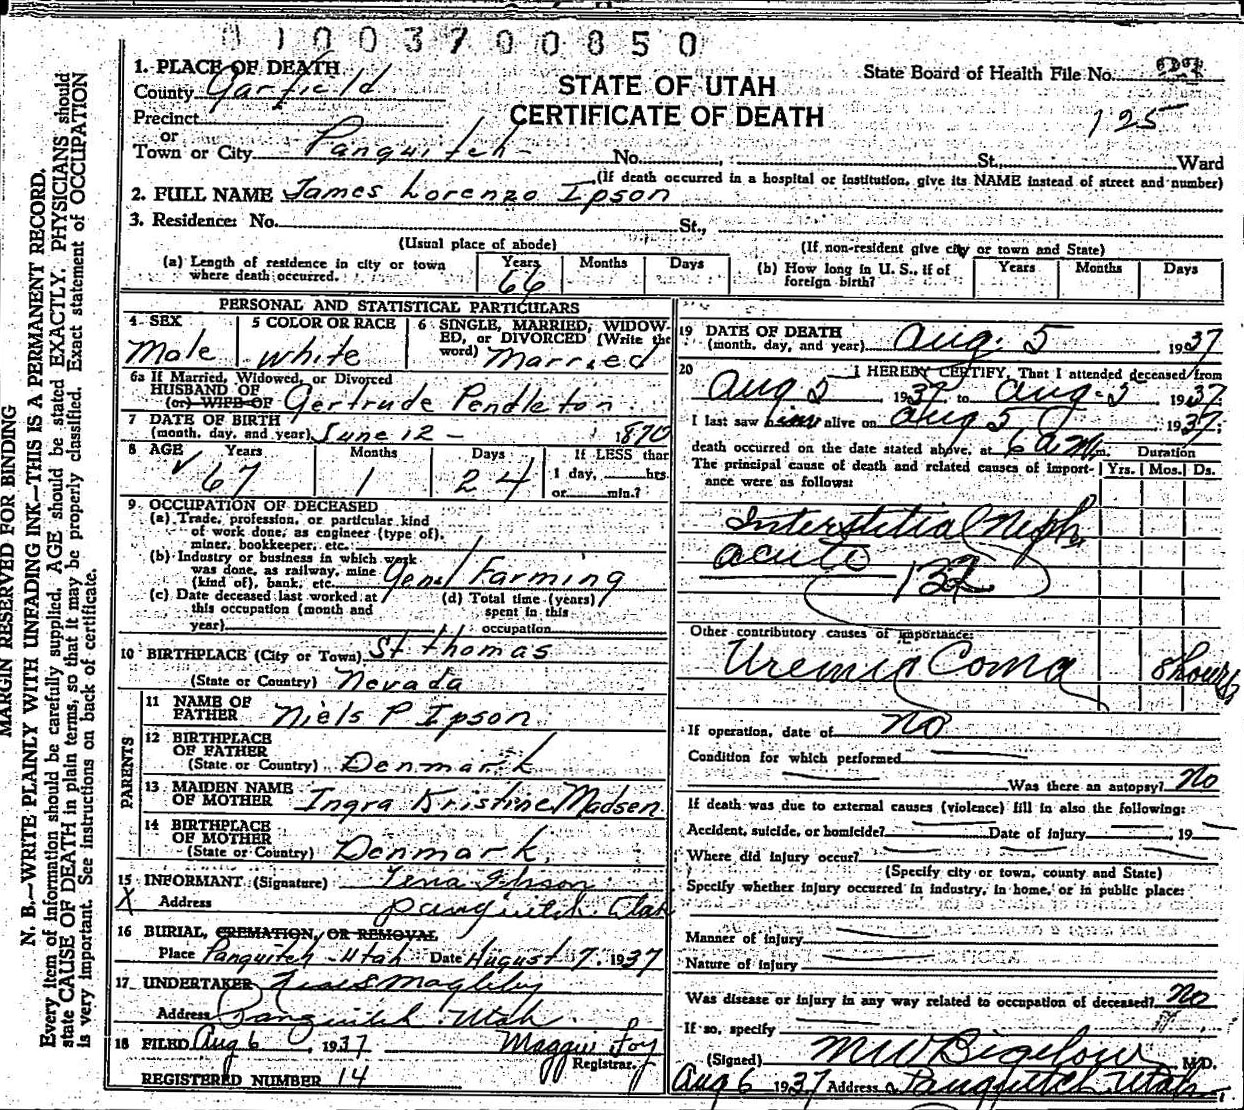 0100370085 0
1. PLACE OF DEATH
County Garfield
Precinct
or
Town or City Panguitch No. , St., Ward
STATE OF UTAH
CERTIFICATE OF DEATH
State Board of Health File No.
125
(If death occurred in a hospital or institution, give its NAME instead of street and number)
2. FULL NAME James Lorenzo Ipson
3. Residence: No. St.,
(Usual place of abode) (If non-resident give city or town and State)
(a) Length of residence in city or town where death occurred. Years 66 Months Days
(b) How long in U. S., if of foreign birth? Years Months Days
PERSONAL AND STATISTICAL PARTICULARS
4 SEX 5 COLOR OR RACE 6 SINGLE, MARRIED, WIDOWED, or DIVORCED (Write the word)
Male white Married
6a If Married, Widowed, or Divorced
HUSBAND OF
(or) WIFE OF Gertrude Pendleton
7 DATE OF BIRTH
(month, day, and year) June 12 - 1870
8 AGE Years Months Days If LESS than
1 day, hrs.
or min.?
67 1 24
9 OCCUPATION OF DECEASED
(a) Trade, profession, or particular kind
of work done, as engineer (type of),
miner, bookkeeper, etc.
(b) Industry or business in which work
was done, as railway, mine
(kind of), bank, etc. Genl Farming
(c) Date deceased last worked at
this occupation (month and
year)
(d) Total time (years)
spent in this
occupation
10 BIRTHPLACE (City or Town) St Thomas
(State or Country) Nevada
PARENTS
11 NAME OF
FATHER Niels P Ipson
12 BIRTHPLACE
OF FATHER
(State or Country) Denmark
13 MAIDEN NAME
OF MOTHER Ingra Kristine Madsen
14 BIRTHPLACE
OF MOTHER
(State or Country) Denmark
15 INFORMANT (Signature) Tena Ipson
X Address Panguitch Utah
16 BURIAL, CREMATION, OR REMOVAL
Place Panguitch Utah Date August 7, 1937
17 UNDERTAKER Magleby
Address Panguitch Utah
18 FILED Aug 6, 1937 Maggie Foy
Registrar.
REGISTERED NUMBER 14
19 DATE OF DEATH
(month, day, and year) Aug. 5 1937
20 I HEREBY CERTIFY, That I attended deceased from
Aug 5 1937, to Aug. 5 1937;
I last saw him alive on Aug 5 1937;
death occurred on the date stated above, at 6 a.m. m. Duration
The principal cause of death and related causes of importance were as follows: Yrs. Mos. Ds.
Interstitial Neph.
acute
132
Other contributory causes of importance:
Uremia Coma 8 hours
If operation, date of No
Condition for which performed
Was there an autopsy? No
If death was due to external causes (violence) fill in also the following:
Accident, suicide, or homicide? Date of injury , 19
Where did injury occur?
(Specify city or town, county and State)
Specify whether injury occurred in industry, in home, or in public place:
Manner of injury
Nature of injury
Was disease or injury in any way related to occupation of deceased? No
If so, specify
(Signed) M W Bigelow M.D.
Aug 6 1937 Address Panguitch Utah
MARGIN RESERVED FOR BINDING
N. B.—WRITE PLAINLY WITH UNFADING INK—THIS IS A PERMANENT RECORD.
Every item of information should be carefully supplied. AGE should be stated EXACTLY. PHYSICIANS should
state CAUSE OF DEATH in plain terms, so that it may be properly classified. Exact statement of OCCUPATION
is very important. See instructions on back of certificate.